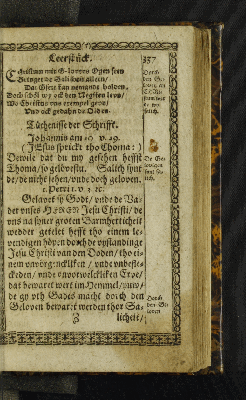 Leerstück.
337
Christum mit Gelovens Ogen seen
Bringet de Salicheit allein/
Dat Hertz kan nemande holden,
Doch schöl wy ock den Negsten leven/
Wo Christus uns exempel gevet/
Und ock gedahn de Olden.
Tüchenisse der Schrifft.
Johannis am 20. v. 29.
(JEsus sprickt tho Thoma:)
Dewile dat du my gesehen hefft
Thoma/so gelövestu. Salich synt
de/de nicht sehen/unde doch gelöven.
1. Petri 1. v. 3. &c.
Gelavet sy Godt/ unde de Va-
der unses HEREN Jesu Christi/ de
uns na syner groten Barmherticheit
wedder getelet hefft tho einem le-
vendigen höpen dorch de upstandinge
Jesu Christi van den Doden/tho ei-
nem unvorgencklicken/ unde unbefle-
ckeden/ unde unvorwelcklicken Erve/
dat bewaret wert im Hemmel/ juw/
de gy uth Gades macht dorch den
Geloven bewaret werden thor Sa-
Z
licheit/
De Ge-
loven
Dorch
den Ge-
loven